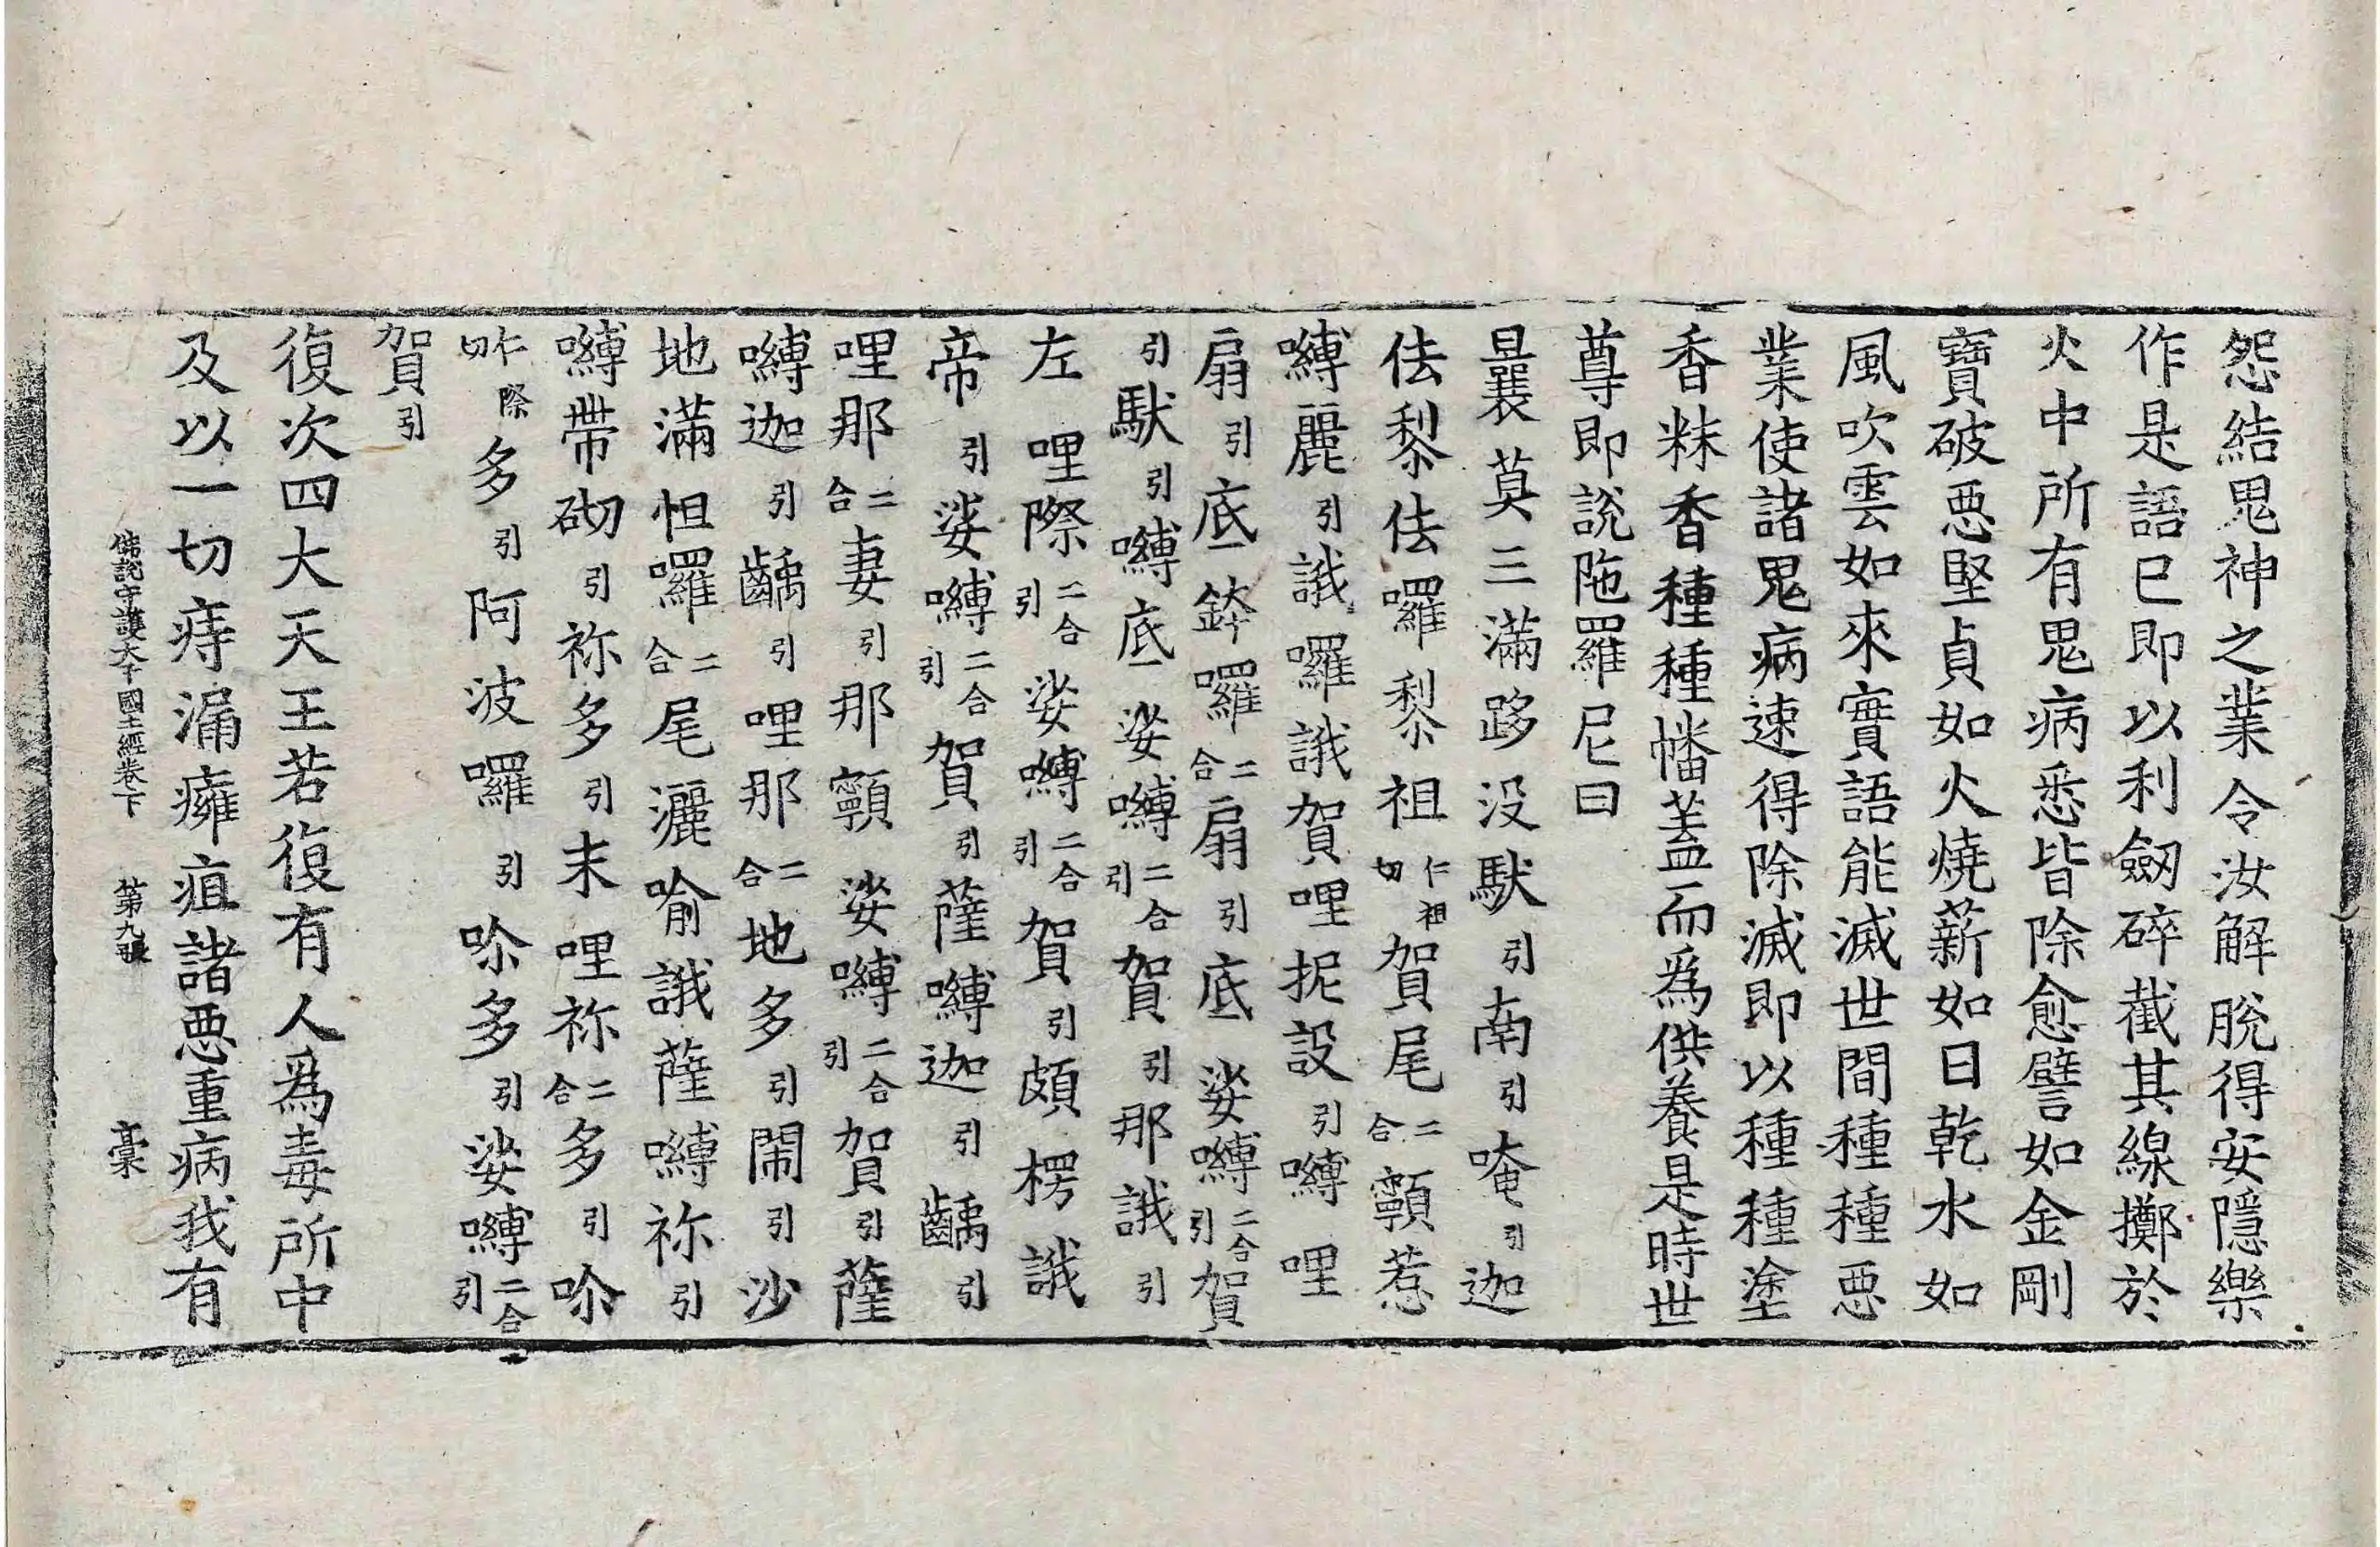 怨結鬼神之業令汝解脫得安隱樂
作是語已即以利劒碎截其線擲於
火中所有鬼病悉皆除愈譬如金剛
寶破惡堅貞如火燒薪如日乾水如
風吹雲如來實語能滅世間種種惡
業使諸鬼病速得除滅即以種種塗
香粖香種種幡盖而爲供養是時世
尊即說陁羅尼曰
曩莫三滿跢没馱引南引唵引迦
佉黎佉囉黎祖仁祖切賀尾二合顐惹
嚩麗引誐囉誐賀哩抳設引嚩哩
扇引底鉢囉二合扇引底娑嚩二合引賀
引馱引嚩底娑嚩二合引賀引那誐引
左哩際二合引娑嚩二合引賀引頗楞誐
帝引娑嚩二合引賀引薩嚩迦引齲引
哩那二合妻引那顐娑嚩二合引賀引薩
嚩迦引齲引哩那二合地多引閙引沙
地滿怛囉二合尾灑喻誐薩嚩祢引
嚩帶砌引祢多引末哩祢二合多引哳
仁際切多引阿波囉引哳多引娑嚩二合引
賀引
復次四大天王若復有人爲毒所中
及以一切痔漏癰疽諸惡重病我有
佛說守護大千國土經卷下 第九張 槀